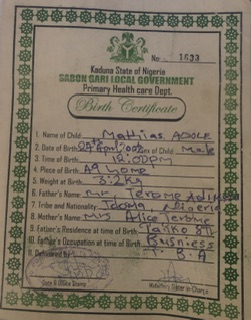 No: 1633
Kaduna State of Nigeria
SABON GARI LOCAL GOVERNMENT
Primary Health care Dept.
Birth Certificate
1. Name of Child Matthias ADOLE
2. Date of Birth April 2008 Sex of Child Male
3. Time of Birth 12:00pm
4. Piece of Birth At Home
5. Weight at Birth 3.2kg
6. Father's Name Mr Jerome
7. Tribe and Nationality Idoma Nigeria
8. Mother's Name Mrs Alice Jerome
9. Father's Residence at time of Birth Tanko St
10. Father's Occupation at time of Birth Business
11. Delivered by T. B. A
Date & Office Stamp
Midwifery Sister in-Charge